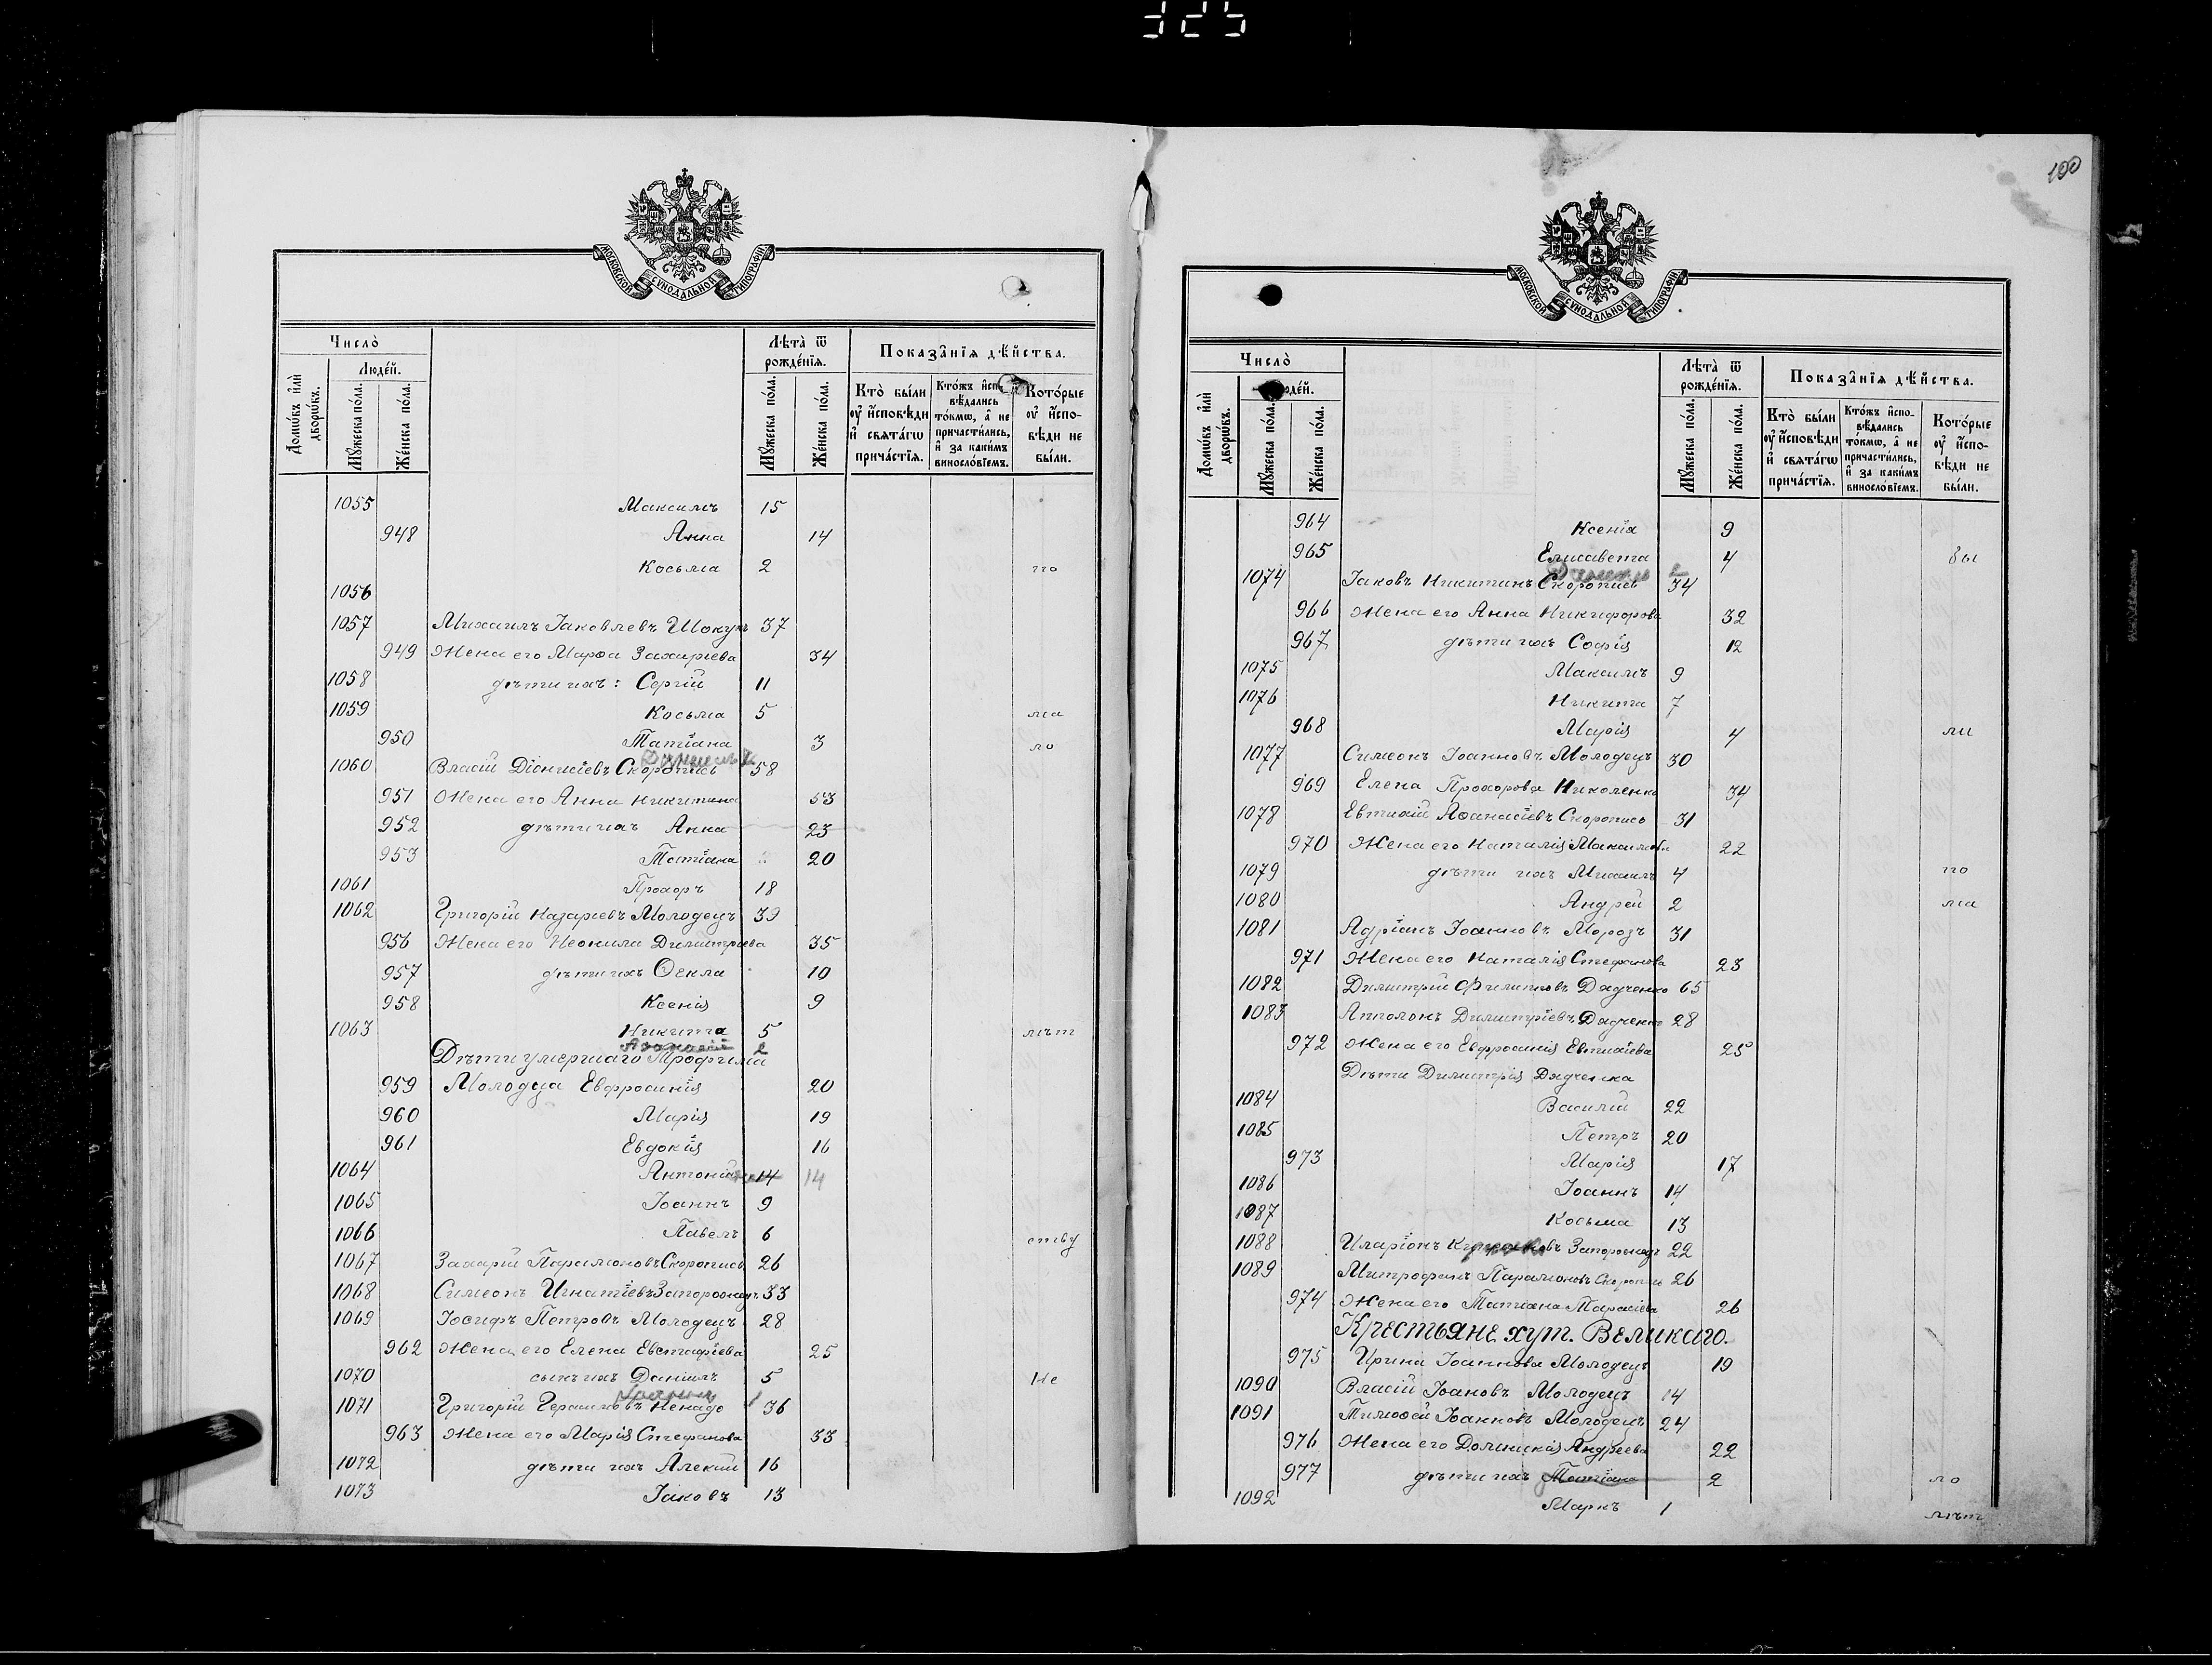 325
МОСКОВСКОЙ СѴНОДАЛЬНОЙ ТИПОГРАФІИ
Число̀
Домѡ́въ и҆лѝ дворѡ́въ.
Люде́й.
Мꙋ́жеска по́ла.
Же́нска по́ла.
Лѣ́та ѿ рожде́нїя.
Мꙋ́жеска по́ла.
Же́нска по́ла.
Показа̑нїя дѣ́йства.
Кто̀ бы́ли оу҆ и҆́сповѣди и҆ свята́гѡ прича́стїя.
вѣ́дались то́кмѡ, а҆ не причасти́лись, и҆ за каки́мъ винослов́їемъ.
Кото́рые оу҆ и҆́спо-вѣди не бы́ли.
1055 Максимъ 15
948 Анна 14
Косьма 2 по
1056
1057 Михаилъ Іаковлевъ Шокунъ 37
949 Жена его Марѳа Захаріева 34
1058 дѣти ихъ: Сергій 11
1059 Косьма 5 ма
950 Татіана 3 ло
1060 Власій Діонисіевъ Скоропись 58
951 Жена его Анна Никитина 53
952 дѣти ихъ Анна 23
953 Татіана 20
1061 Прохоръ 18
1062 Григорій Назаріевъ Молодецъ 39
956 Жена его Неонила Димитріева 35
957 дѣти ихъ Ѳекла 10
958 Ксенія 9
1063 Никита 5 лѣт
Дѣти умершаго Трофима
959 Молодца Евфросинія 20
960 Марія 19
961 Евдокія 16
1064 Антоній 14 14
1065 Іоаннъ 9
1066 Павелъ 6 ству
1067 Захарій Парамоновъ Скоропись 26
1068 Симеонъ Игнатіевъ Запорожецъ 33
1069 Іосифъ Петровъ Молодецъ 28
962 Жена его Елена Евстафіева 25
1070 сынъ ихъ Даніилъ 5 Не
1071 Григорій Герасимовъ Ненадо 36
963 Жена его Марія Стефанова 33
1072 дѣти ихъ Алексій 16
1073 Іаковъ 13
100
МОСКОВСКОЙ СѴНОДАЛЬНОЙ ТИПОГРАФІИ
Число̀
Домѡ́въ и҆лѝ дворѡ́въ.
Мꙋ́жеска по́ла.
Же́нска по́ла.
Лѣ́та ѿ рожде́нїя.
Мꙋ́жеска по́ла.
Же́нска по́ла.
Показа̑нїя дѣ́йства.
Кто̀ бы́ли оу҆ и҆́сповѣди и҆ свята́гѡ прича́стїя.
Кто́жъ и҆спо-вѣ́дались то́кмѡ, а҆ не причасти́лись, и҆ за каки́мъ винослов́їемъ.
Кото́рые оу҆ и҆́спо-вѣди не бы́ли.
964 Ксенія 9
965 Елисавета 4 бы
1074 Іаковъ Никитинъ Скоропись 34
966 Жена его Анна Никифорова 32
967 дѣти ихъ Софія 12
1075 Максимъ 9
1076 Никита 7
968 Марія 4 ли
1077 Симеонъ Іоанновъ Молодецъ 30
969 Елена Прохорова Николенко 34
1078 Евтихій Аѳанасіевъ Скоропись 31
970 Жена его Наталія Максимова 22
1079 дѣти ихъ Михаилъ 4 по
1080 Андрей 2 ма
1081 Адріанъ Іоанновъ Морозъ 31
971 Жена его Наталія Стефанова 23
1082 Димитрій Филипповъ Дядченко 65
1083 Апполонъ Димитріевъ Дядченко 28
972 Жена его Евфросинія Евтихіева 25
Дѣти Димитрія Дядченка
1084 Василій 22
1085 Петръ 20
973 Марія 17
1086 Іоаннъ 14
1087 Косьма 13
1088 Иларіонъ Запорожецъ 22
1089 Митрофанъ Парамоновъ Скоропись 26
974 Жена его Татіана Тарасіева 26
Крестьяне хут. Великаго.
975 Ирина Іоаннова Молодецъ 19
1090 Власій Іоановъ Молодецъ 14
1091 Тимоѳей Іоанновъ Молодецъ 24
976 Жена его Домникія Андреева 22
977 дѣти ихъ Татіана 2 ло
1092 Маркъ 1 лѣт